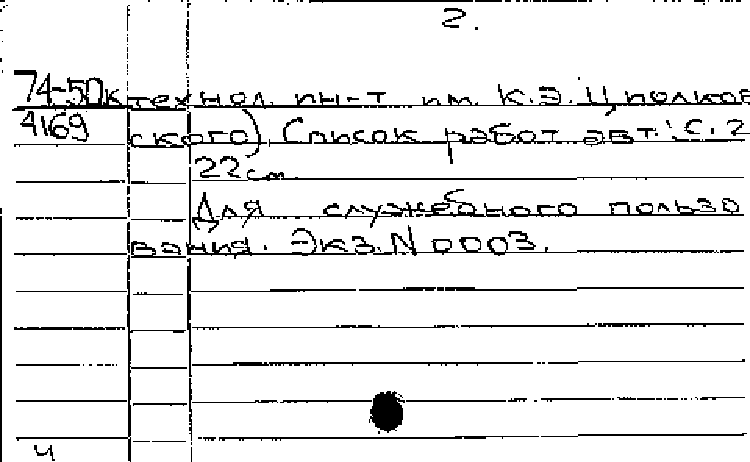 2.
74-50к технол. ин-т им. К.Э. Циолков
4169 ского). Список работ авт.: С. 2
22 см.
Для служебного пользо
вания. Экз. N 0003.
ч